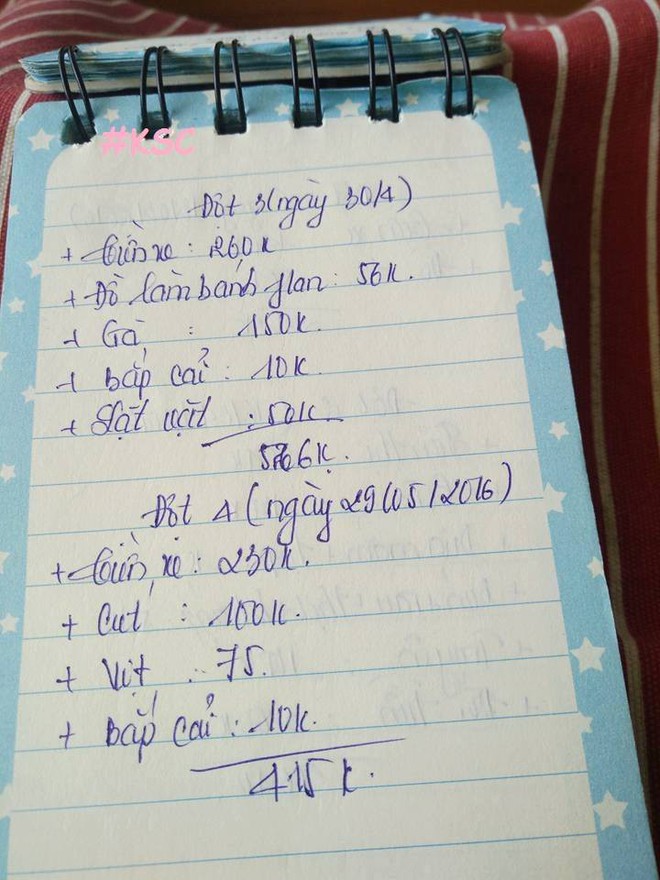 #KSC
Đợt 3 (ngày 30/4)
+ tiền xe : 260k
+ Đồ làm bánh flan : 56k.
+ Gà : 150k.
+ bắp cải : 10k.
+ vặt : 50k
526k.
Đợt 4 (ngày 29/05/2016)
+ tiền xe : 230k.
+ Cút : 100k.
+ Vịt : 75.
+ bắp cải : 10k.
415k.